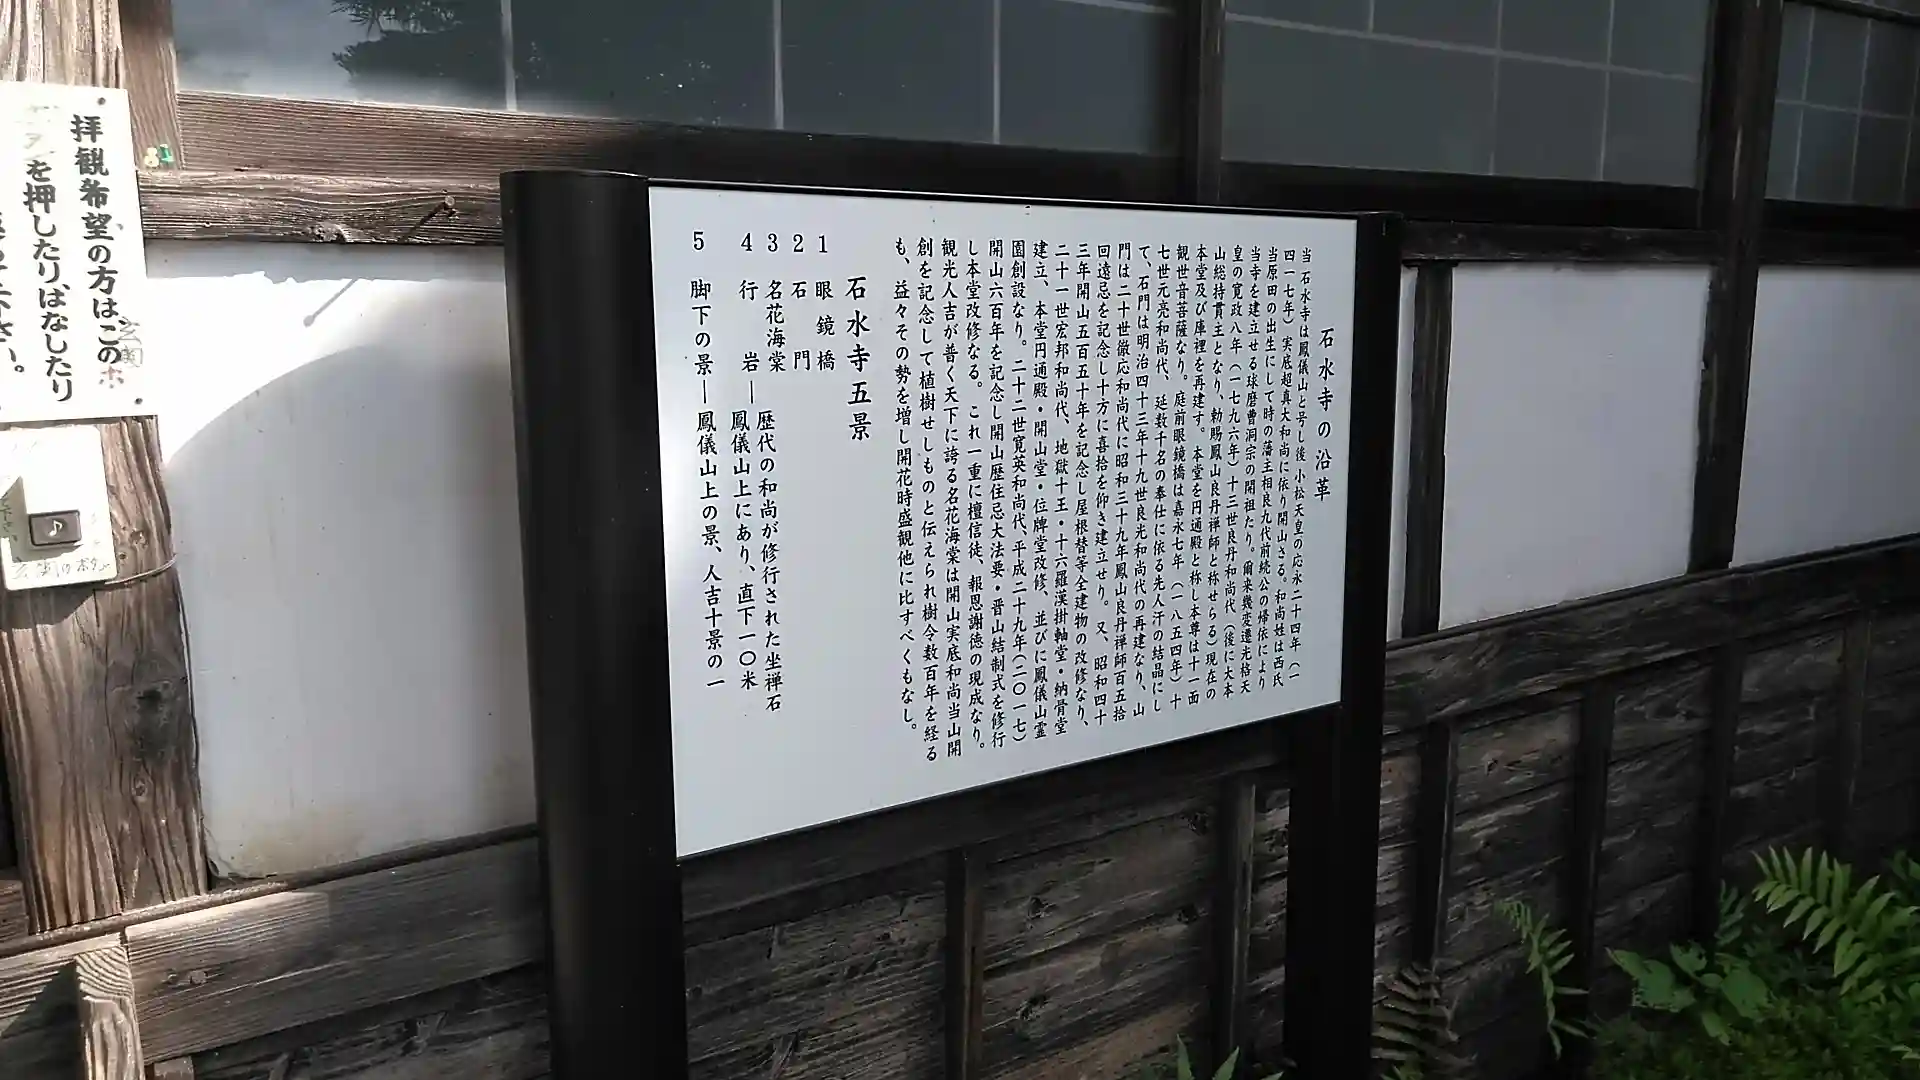 石水寺の沿革
当石水寺は鳳儀山と号し後小松天皇の応永二十四年（一
四一七年）実底超真大和尚に依り開山さる。和尚姓は西氏
当原田の出生にして時の藩主相良九代前続公の帰依により
当寺を建立せる球磨曹洞宗の開祖たり。爾来幾変遷光格天
皇の寛政八年（一七九六年）十三世良丹和尚代（後に大本
山総持貫主となり、勅賜鳳山良丹禅師と称せらる）現在の
本堂及び庫裡を再建す。本堂を円通殿と称し本尊は十一面
観世音菩薩なり。庭前眼鏡橋は嘉永七年（一八五四年）十
七世元亮和尚代、延数千名の奉仕に依る先人汗の結晶にし
て、石門は明治四十三年十九世良光和尚代の再建なり、山
門は二十世徹応和尚代に昭和三十九年鳳山良丹禅師百五拾
回遠忌を記念し十方に喜捨を仰き建立せり。又、昭和四十
三年開山五百五十年を記念し屋根替等全建物の改修なり、
二十一世宏邦和尚代、地獄十王・十六羅漢掛軸堂・納骨堂
建立、本堂円通殿・開山堂・位牌堂改修、並びに鳳儀山霊
園創設なり。二十二世寛英和尚代、平成二十九年（二〇一七）
開山六百年を記念し開山歴住忌大法要・晋山結制式を修行
し本堂改修なる。これ一重に檀信徒、報恩謝徳の現成なり。
観光人吉が普く天下に誇る名花海棠は開山実底和尚当山開
創を記念して植樹せしものと伝えられ樹令数百年を経る
も、益々その勢を増し開花時盛観他に比すべくもなし。
石水寺五景
1 眼鏡橋
2 石門
3 名花海棠
4 行岩―歴代の和尚が修行された坐禅石
鳳儀山上にあり、直下一〇米
5 脚下の景―鳳儀山上の景、人吉十景の一
拝観希望の方はこのホ
を押したりばなしたり
玄関
下さい。